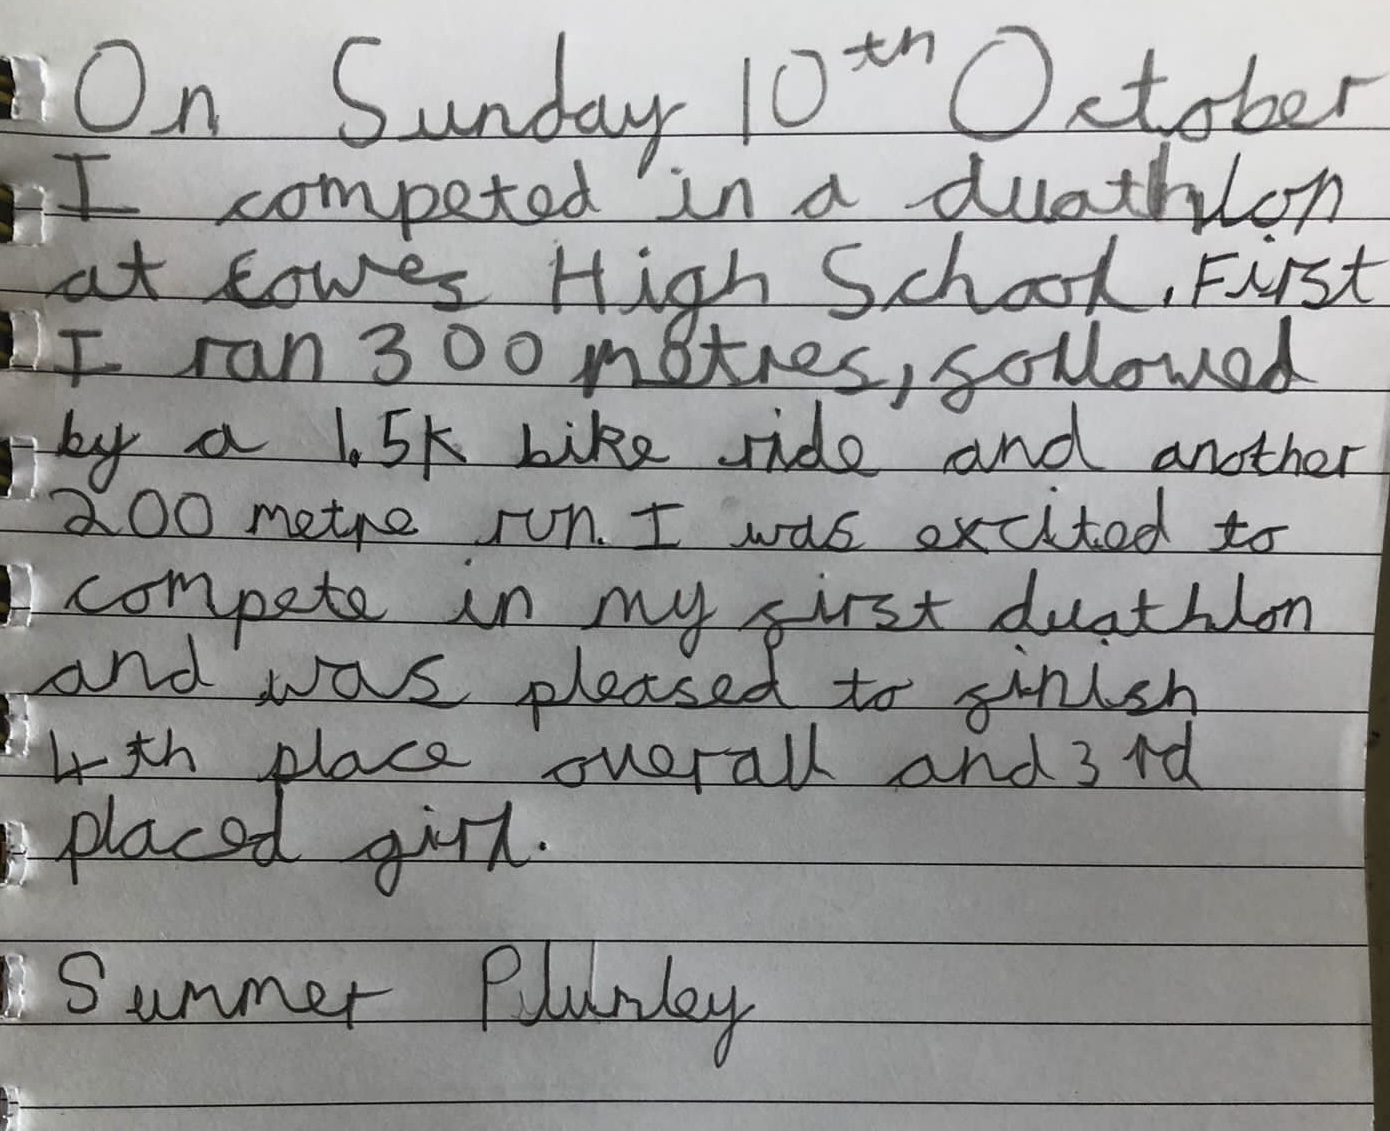 On Sunday 10th October
I competed in a duathlon
at Cowes High School. First
I ran 300 metres, followed
by a 1.5K bike ride and another
200 metre run. I was excited to
compete in my first duathlon
and was pleased to finish
4th place overall and 3rd
placed girl.
Summer